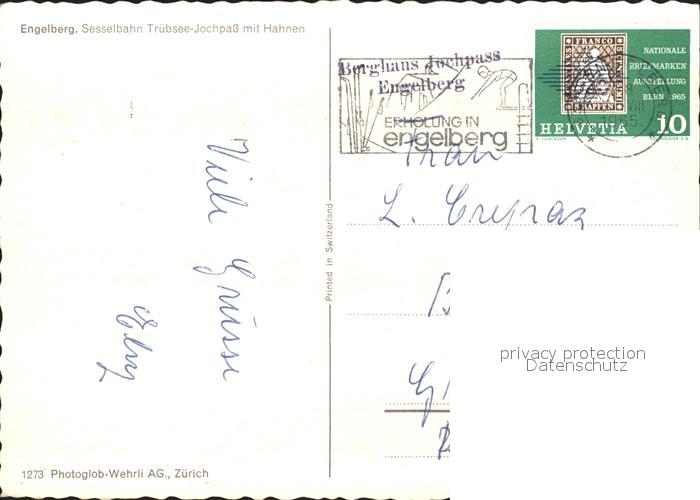 Engelberg. Sesselbahn Trübsee-Jochpaß mit Hahnen
Viele Grüsse
Berghaus Jochpass
Engelberg
ERHOLUNG IN
engelberg
FRANCO
RAPPEN
NATIONALE
BRIEFMARKEN
AUSSTELLUNG
BERN 1965
HELVETIA 10
1965
Frau
L.
Printed in Switzerland
privacy protection
Datenschutz
1273 Photoglob-Wehrli AG., Zürich